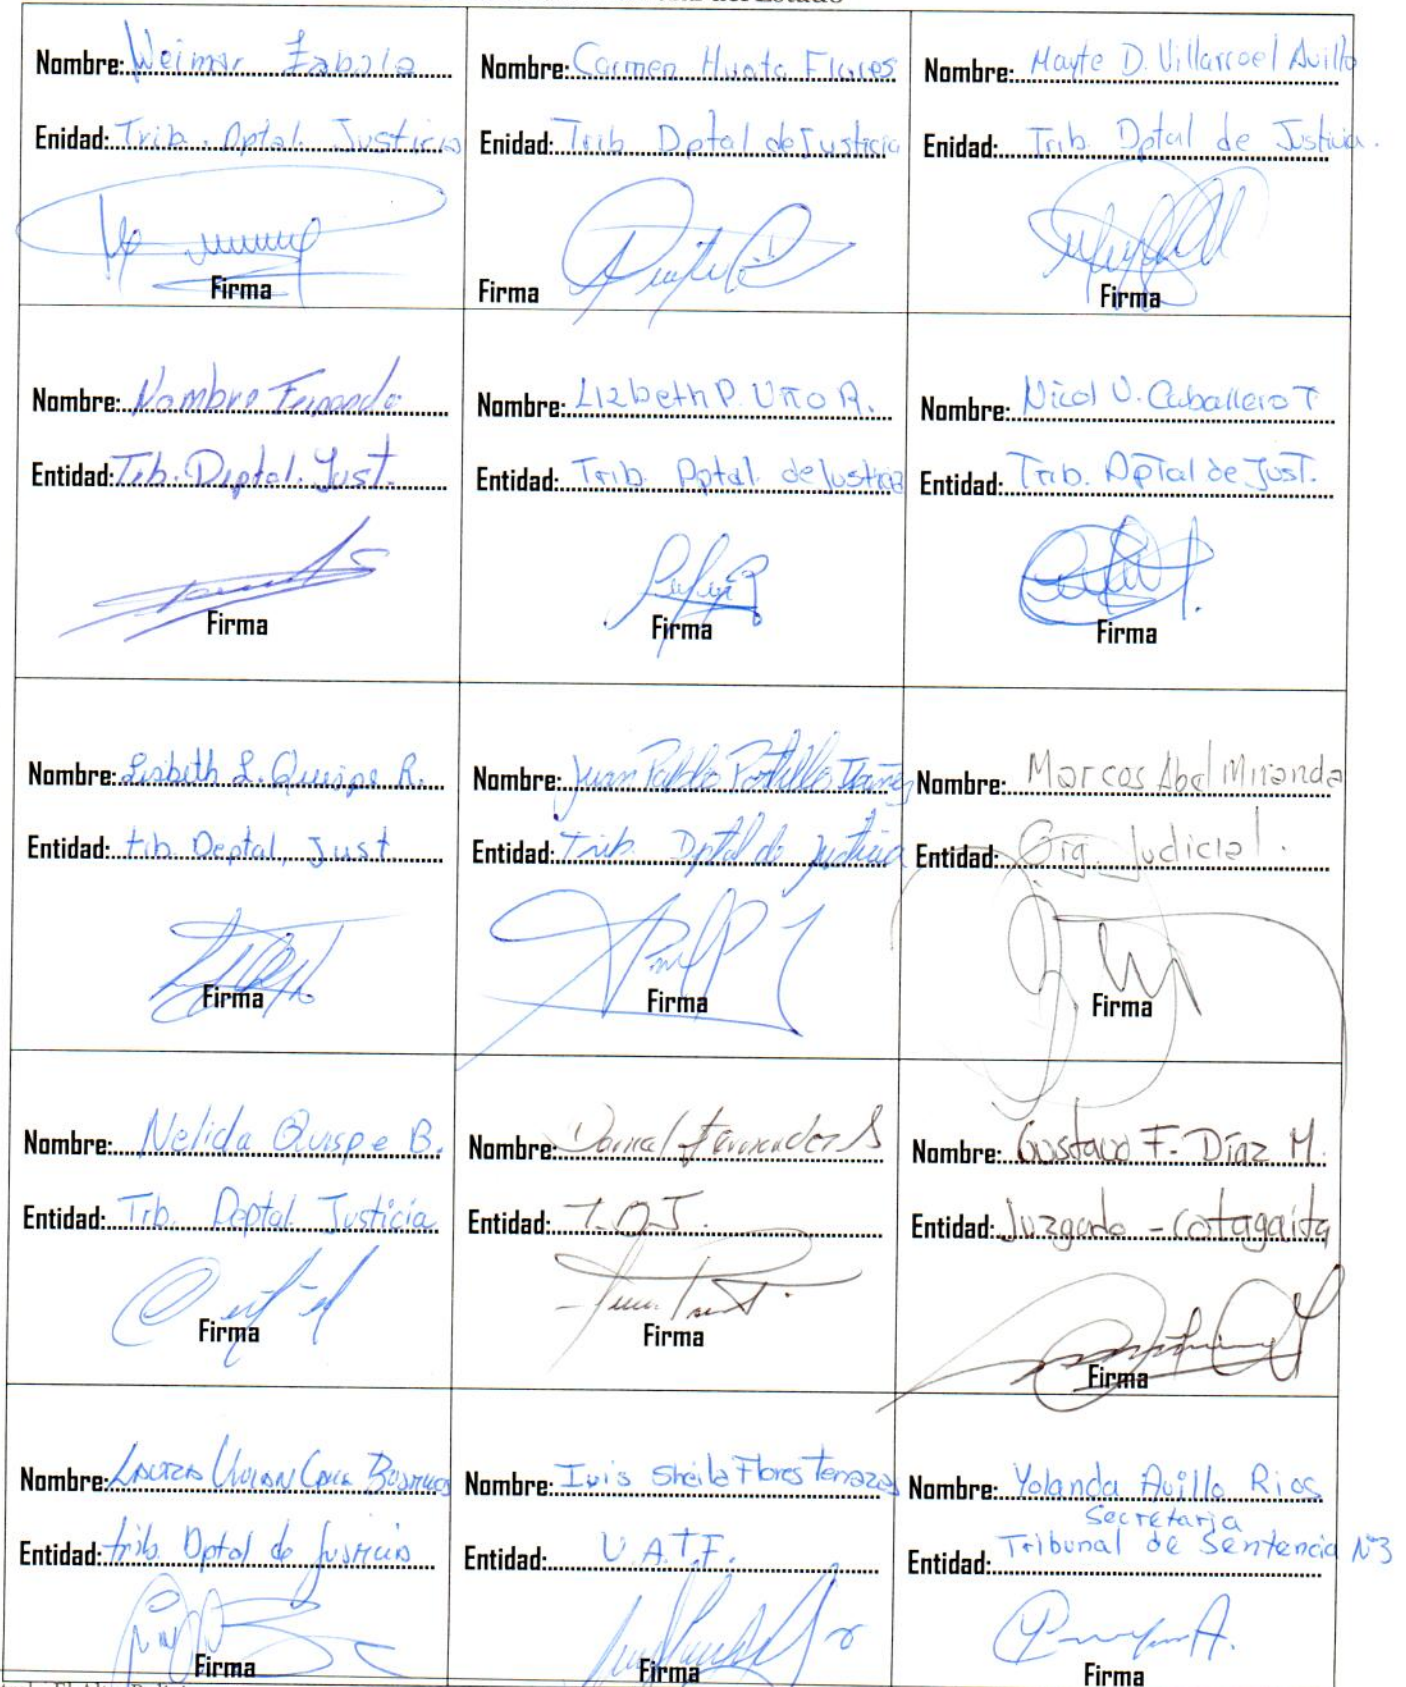 Estado
Nombre: Weimar Zabala
Enidad: Trib. Dptal. Justicia
Firma
Nombre: Carmen Huata Flores
Enidad: Trib. Dptal de Justicia
Firma
Nombre: Mayte D. Villarroel Avillo
Enidad: Trib. Dptal de Justicia.
Firma
Nombre: Nombre Fernando
Entidad: Trib. Deptal. Just.
Firma
Nombre: Lizbeth P. Uño A.
Entidad: Trib. Dptal. de Justicia
Firma
Nombre: Nicol V. Caballero T
Entidad: Trib. Dptal de Just.
Firma
Nombre: Lisbeth L. Quispe R.
Entidad: trib. Deptal, Just
Firma
Nombre: Juan Pablo Portillo Ibañez
Entidad: Trib. Dptal de Justicia
Firma
Nombre: Marcos Abel Miranda
Entidad: Org. Judicial.
Firma
Nombre: Nelida Quispe B.
Entidad: Trb. Deptal. Justicia
Firma
Nombre: Daniel Fernandez S
Entidad: T.D.J.
Firma
Nombre: Gustavo F. Díaz M.
Entidad: Juzgado - Cotagaita
Firma
Nombre:
Entidad: trib. Dptal de Justicia
Firma
Nombre: Ivis Sheila Flores Terrazas
Entidad: U.A.T.F.
Firma
Nombre: Yolanda Avillo Rios
Secretaria
Entidad: Tribunal de Sentencia N°3
Firma